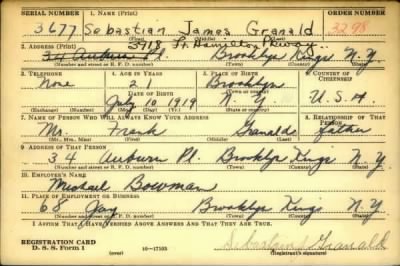 SERIAL NUMBER 1. NAME (Print) ORDER NUMBER
3677 Sebastian James Granald 3298
(First) (Middle) (Last)
3918 Ft. Hamilton Pkway
2. ADDRESS (Print)
34 Auburn Pl. Brooklyn Kings N.Y.
(Number and street or R. F. D. number) (Town) (County) (State)
3. TELEPHONE 4. AGE IN YEARS 5. PLACE OF BIRTH 6. COUNTRY OF CITIZENSHIP
None 21 Brooklyn
DATE OF BIRTH (Town or county)
July 10 1919 N.Y. U.S.A.
(Exchange) (Number) (Mo.) (Day) (Yr.) (State or country)
7. NAME OF PERSON WHO WILL ALWAYS KNOW YOUR ADDRESS 8. RELATIONSHIP OF THAT PERSON
Mr. Frank Granald Father
(Mr., Mrs., Miss) (First) (Middle) (Last)
9. ADDRESS OF THAT PERSON
34 Auburn Pl. Brooklyn Kings N.Y.
(Number and street or R. F. D. number) (Town) (County) (State)
10. EMPLOYER'S NAME
Michael Bowman
11. PLACE OF EMPLOYMENT OR BUSINESS
68 Jay Brooklyn Kings N.Y.
(Number and street or R. F. D. number) (Town) (County) (State)
I AFFIRM THAT I HAVE VERIFIED ABOVE ANSWERS AND THAT THEY ARE TRUE.
REGISTRATION CARD
D. S. S. Form 1 (over) 16—17105 Sebastian J Granald
(Registrant's signature)